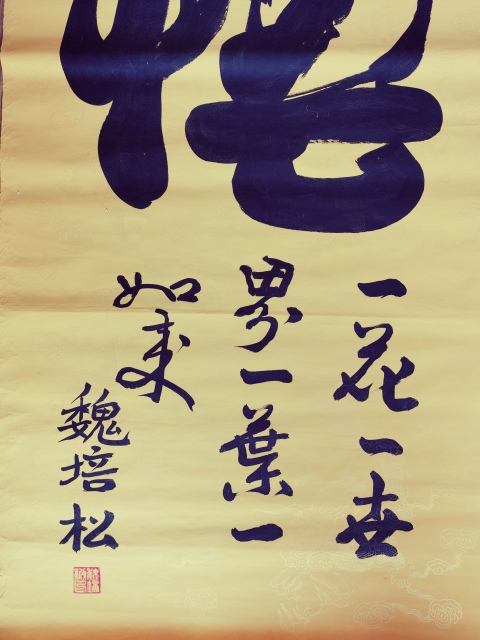 悟
一花一世
界一葉一
如来
魏培松